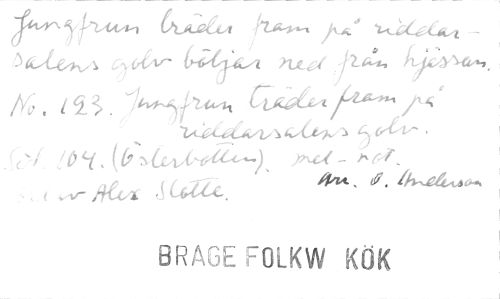 Jungfrun träder fram på riddar-
salens golv böljar ned från hjässan.
No. 123. Jungfrun träder fram på
riddarsalens golv.
104. (Österbotten). mel-not.
Alex Slotte. arr. O. Anderson
BRAGE FOLKW KÖK